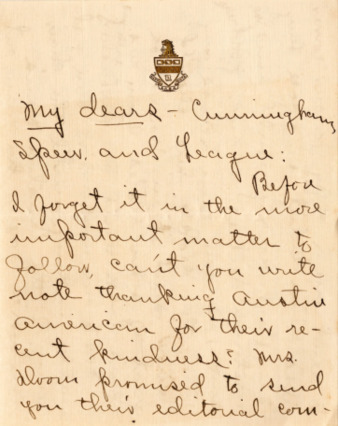 My dears - Cunningham,
Speer, and League:
Before
I forget it in the more
important matter to
follow, can't you write
note thanking Austin
American for their re-
cent kindness? Mrs.
promised to send
you their editorial com-